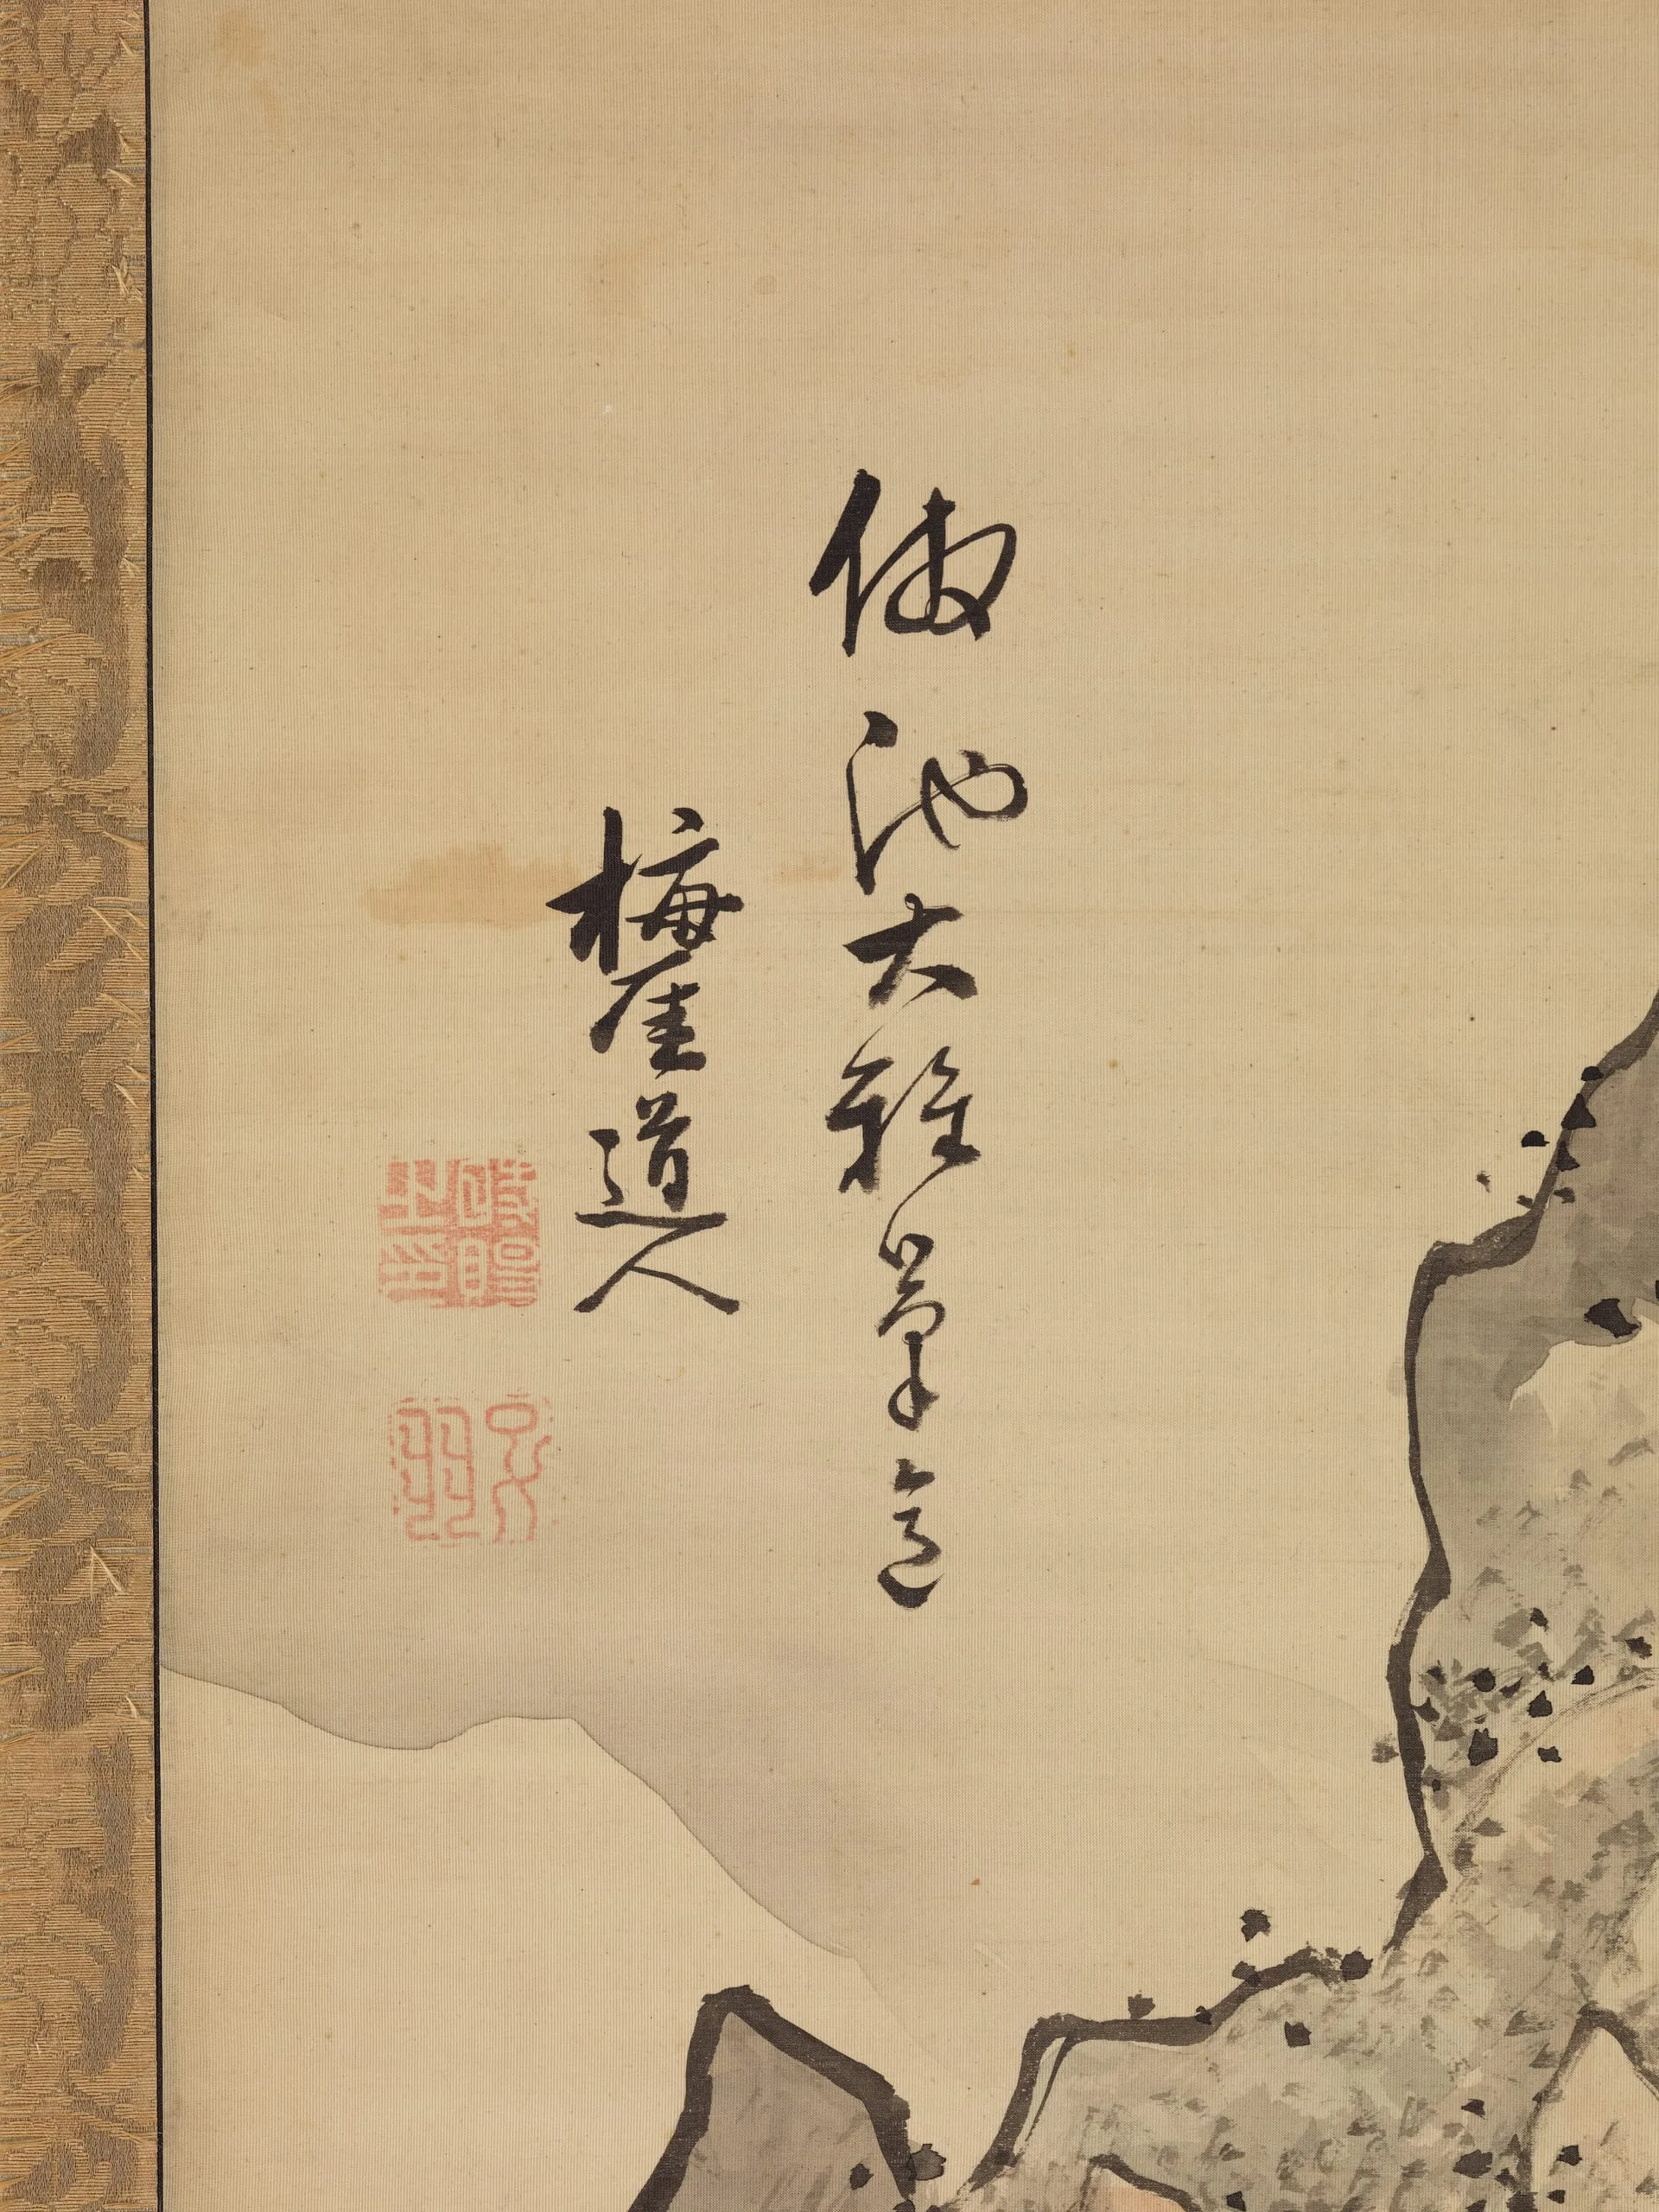 倣池大雅筆意
梅厓道人